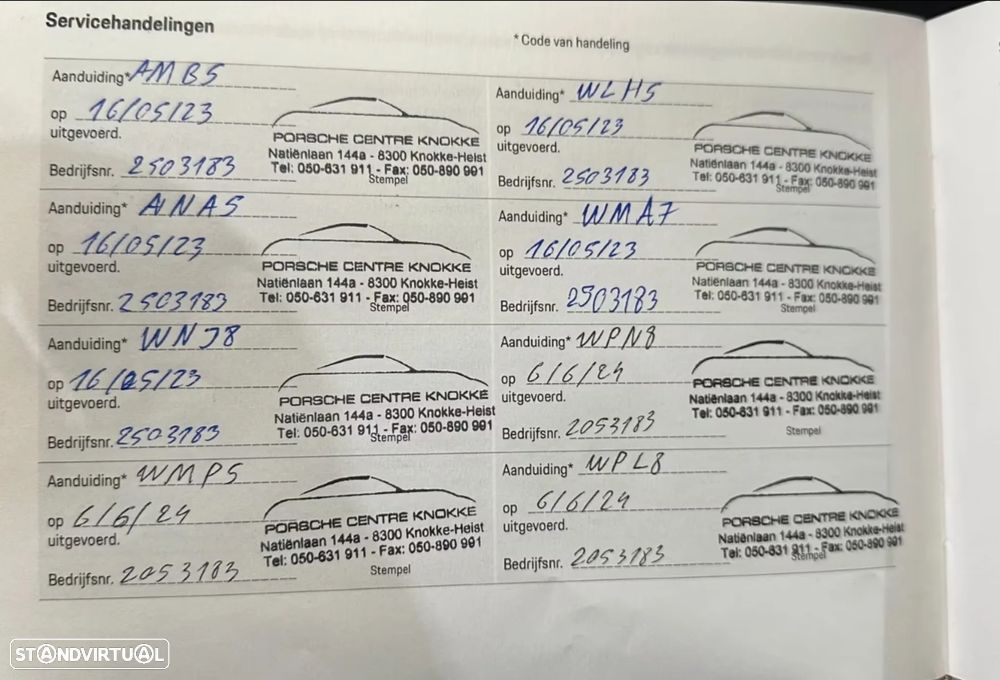 Servicehandelingen
* Code van handeling
Aanduiding* AMB5
op 16/05/23
uitgevoerd.
Bedrijfsnr. 2503183
PORSCHE CENTRE KNOKKE
Natiënlaan 144a - 8300 Knokke-Heist
Tel: 050-631 911 - Fax: 050-890 991
Stempel
Aanduiding* WLH5
op 16/05/23
uitgevoerd.
Bedrijfsnr. 2503183
PORSCHE CENTRE KNOKKE
Natiënlaan 144a - 8300 Knokke-Heist
Tel: 050-631 911 - Fax: 050-890 991
Stempel
Aanduiding* ANA5
op 16/05/23
uitgevoerd.
Bedrijfsnr. 2503183
PORSCHE CENTRE KNOKKE
Natiënlaan 144a - 8300 Knokke-Heist
Tel: 050-631 911 - Fax: 050-890 991
Stempel
Aanduiding* WMA7
op 16/05/23
uitgevoerd.
Bedrijfsnr. 2503183
PORSCHE CENTRE KNOKKE
Natiënlaan 144a - 8300 Knokke-Heist
Tel: 050-631 911 - Fax: 050-890 991
Stempel
Aanduiding* WNJ8
op 16/05/23
uitgevoerd.
Bedrijfsnr. 2503183
PORSCHE CENTRE KNOKKE
Natiënlaan 144a - 8300 Knokke-Heist
Tel: 050-631 911 - Fax: 050-890 991
Stempel
Aanduiding* WPN8
op 6/6/24
uitgevoerd.
Bedrijfsnr. 2053183
PORSCHE CENTRE KNOKKE
Natiënlaan 144a - 8300 Knokke-Heist
Tel: 050-631 911 - Fax: 050-890 991
Stempel
Aanduiding* WMP5
op 6/6/24
uitgevoerd.
Bedrijfsnr. 2053183
PORSCHE CENTRE KNOKKE
Natiënlaan 144a - 8300 Knokke-Heist
Tel: 050-631 911 - Fax: 050-890 991
Stempel
Aanduiding* WPL8
op 6/6/24
uitgevoerd.
Bedrijfsnr. 2053183
PORSCHE CENTRE KNOKKE
Natiënlaan 144a - 8300 Knokke-Heist
Tel: 050-631 911 - Fax: 050-890 991
Stempel
STANDVIRTUAL